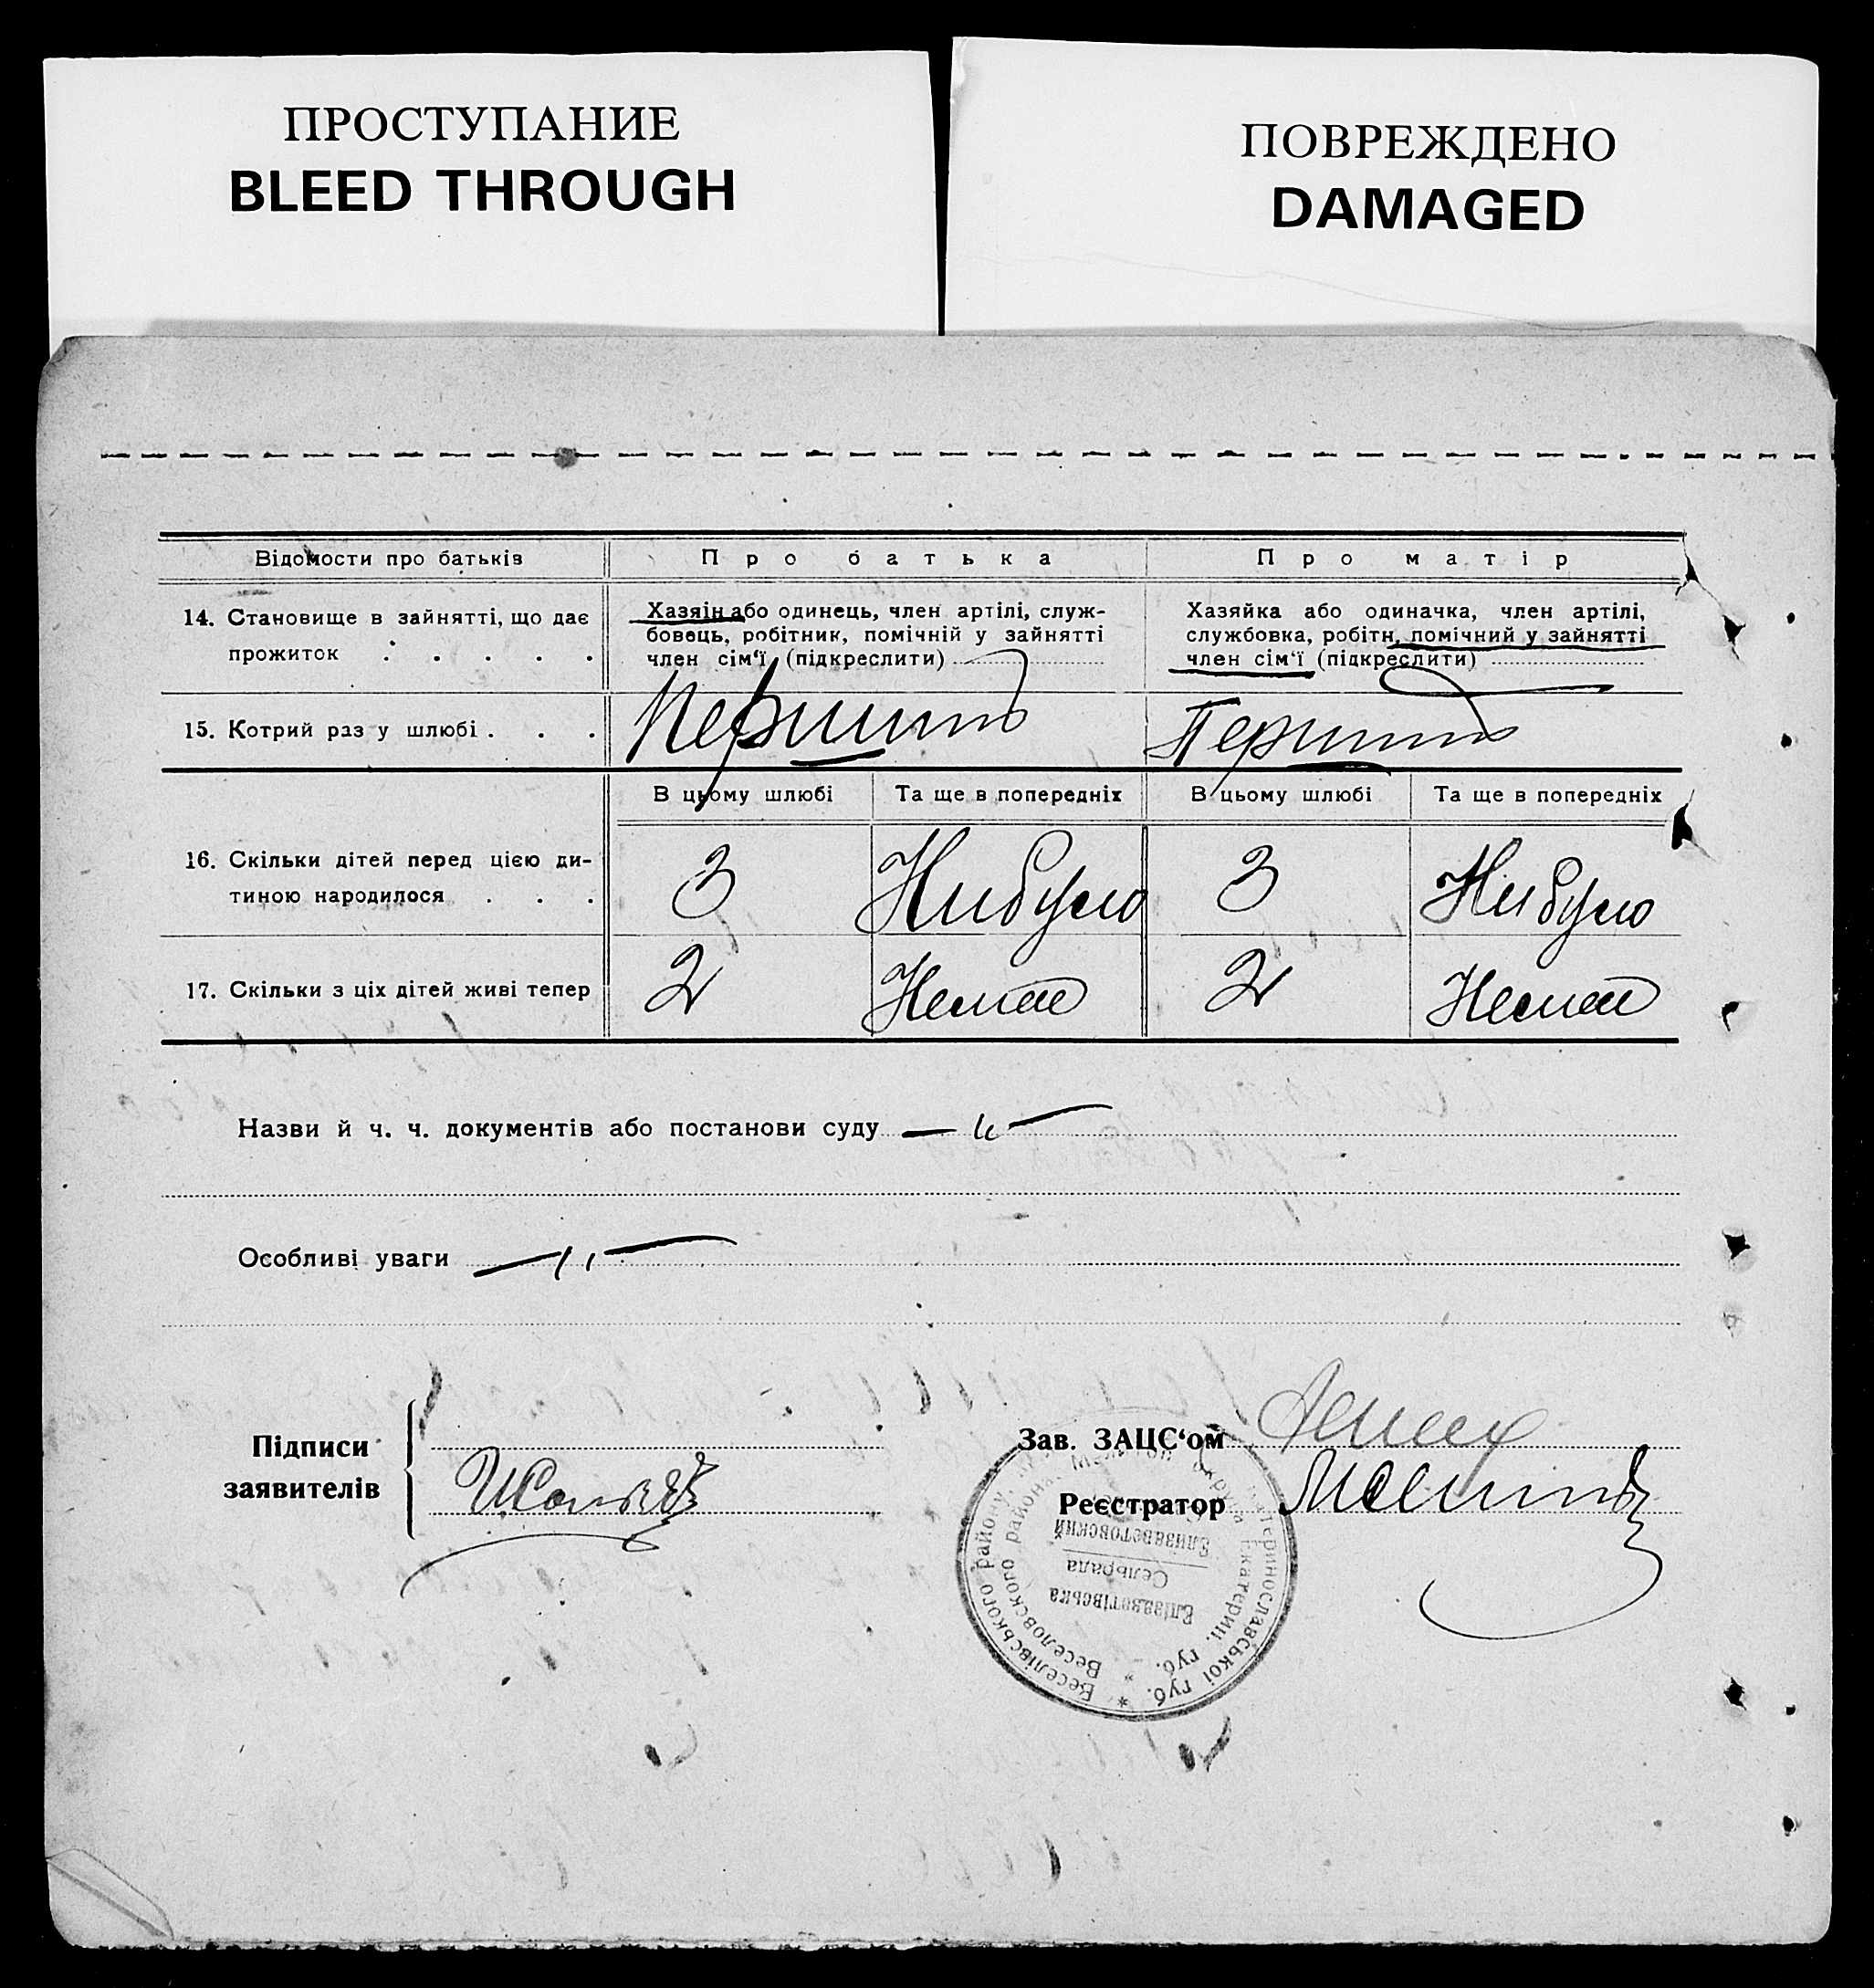 ПРОСТУПАНИЕ
BLEED THROUGH
ПОВРЕЖДЕНО
DAMAGED
Відомости про батьків
Про батька
Про матір
14. Становище в зайнятті, що дає
прожиток . . . . .
Хазяїн або одинець, член артілі, служ-
бовець, робітник, помічній у зайнятті
член сім'ї (підкреслити)
Хазяйка або одиначка, член артілі,
службовка, робітн, помічний у зайнятті
член сім'ї (підкреслити)
15. Котрий раз у шлюбі . . .
Першить
Першить
В цьому шлюбі
Та ще в попередніх
В цьому шлюбі
Та ще в попередніх
16. Скільки дітей перед цією ди-
тиною народилося . . .
3
Нибуло
3
Нибуло
17. Скільки з ціх дітей живі тепер
2
Немає
2
Немає
Назви й ч. ч. документів або постанови суду — " —
Особливі уваги — " —
Підписи
заявителів
Зав. ЗАЦС'ом
Реєстратор
Веселівського району
Катеринославської губ.
Веселовского района
Екатерин. губ.
Єлізаветівська
Сельрада
Елизаветовский